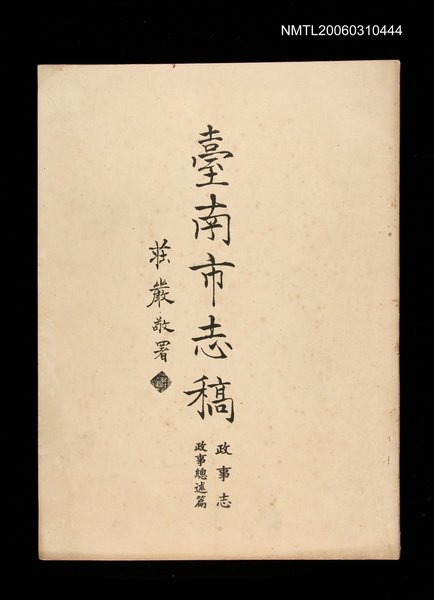 NMTL20060310444
臺南市志稿
政事志
政事總述篇
莊嚴敬署